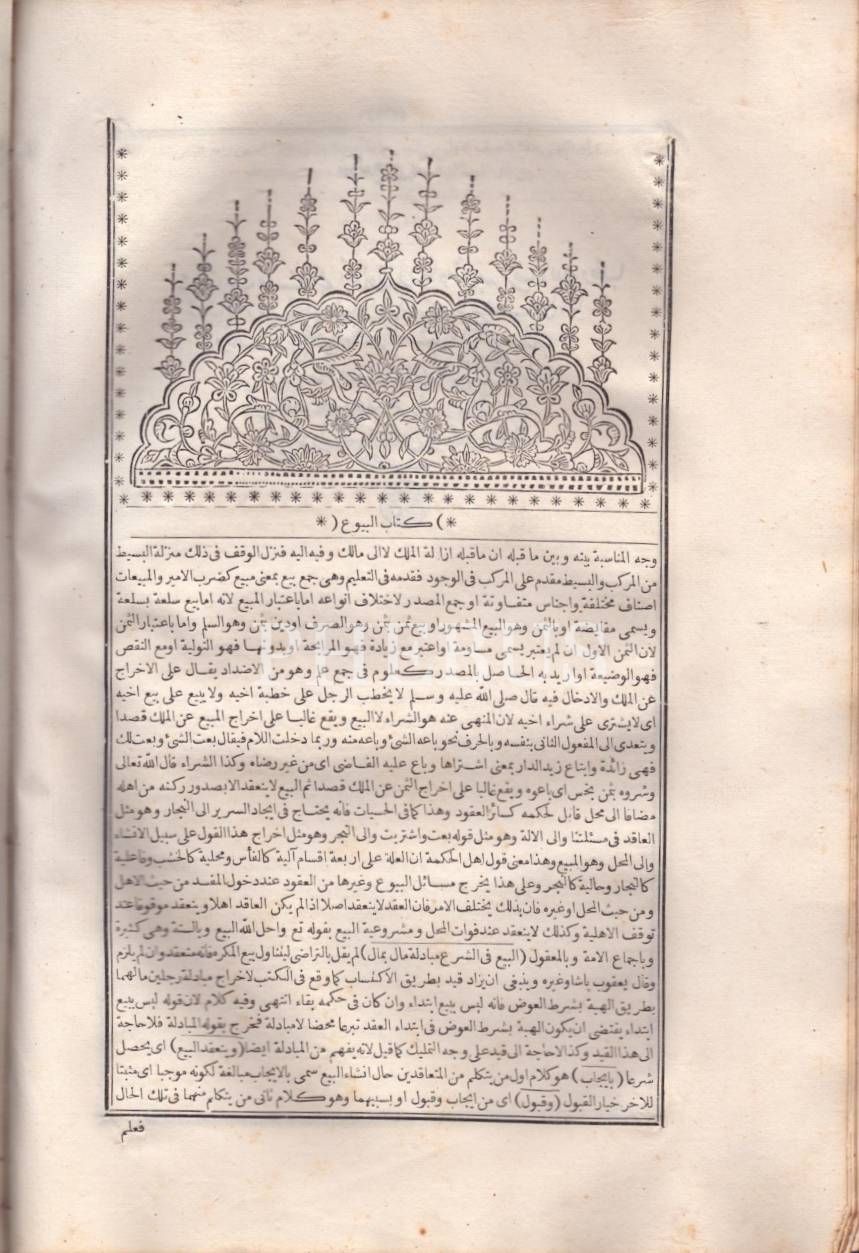 *) كتاب البيوع (*
وجه المناسبة بينه وبين ما قبله ان ماقبله ازالة الملك لاالى مالك وفيه اليه فنزل الوقف فى ذلك منزلة البسيط
من المركب والبسيط مقدم على المركب فى الوجود فقدمه فى التعليم وهى جمع بيع بمعنى مبيع كضرب الامير والمبيعات
اصناف مختلفة واجناس متفاوتة اوجمع المصدر لاختلاف انواعه امابا عتبار المبيع لانه امابيع سلعة بسلعة
ويسمى مقايضة اوبالثمن وهو البيع المشهور اوبيع ثمن بثمن وهو الصرف اودين بثمن وهو السلم واما باعتبار الثمن
لان الثمن الاول ان لم يعتبر يسمى مساومة اواعتبر مع زيادة فهو المرابحة اوبدونها فهو التولية اومع النقص
فهو الوضيعة اواريد به الحاصل بالمصدر كعلوم فى جمع علم وهو من الاضداد يقال على الاخراج
عن الملك والادخال فيه قال صلى الله عليه وسلم لايخطب الرجل على خطبة اخيه ولا يبيع على بيع اخيه
اى لايشترى على شراء اخيه لان المنهى عنه هو الشراء لا البيع ويقع غالبا على اخراج المبيع عن الملك قصدا
ويتعدى الى المفعول الثانى بنفسه وبالحرف نحو باعه الشئ وباعه منه وربما دخلت اللام فيقال بعت الشئ وبعت لك
فهى زائمة وابتاع زيد الدار بمعنى اشتراها وباع عليه القاضى اى من غير رضاه وكذا الشراء قال الله تعالى
وشروه بثمن بخس اى باعوه ويقع غالبا على اخراج الثمن عن الملك قصدا ثم البيع لاينعقد الابصدور ركنه من اهله
مضافا الى محل قابل لحكمه كسائر العقود وهذا كما فى الحسيات فانه يحتاج فى ايجاد السرير الى النجار وهو مثل
العاقد فى مسئلتنا والى الالة وهو مثل قوله بعت واشتريت والى النجر وهو مثل اخراج هذا القول على سبيل الانشاء
والى المحل وهو المبيع وهذا معنى قول اهل الحكمة ان العلة على اربعة اقسام آلية كالفأس ومحلية كالخشب وفاعلية
كالنجار وحالية كالنجر وعلى هذا يخرج مسائل البيوع وغيرها من العقود عند دخول المفسد من حيث الاهل
ومن حيث المحل اوغيره فان بذلك يختلف الامر فان العقد لاينعقد اصلا اذا لم يكن العاقد اهلا وينعقد موقوفا عند
توقف الاهلية وكذلك لاينعقد عند فوات المحل ومشروعية البيع بقوله تع واحل الله البيع وبالسنة وهى كثيرة
وباجماع الامة وبالمعقول (البيع فى الشرع مبادلة مال بمال) لم يقل بالتراضى ليتناول بيع المكره فانه منعقد وان لم يلزم
وقال يعقوب باشا وغيره وينبغى ان يزاد قيد بطريق الاكتساب كما وقع فى الكتب لاخراج مبادلة رجلين مالهما
بطريق الهبة بشرط العوض فانه ليس ببيع ابتداء وان كان فى حكمه بقاء انتهى وفيه كلام لان قوله ليس ببيع
ابتداء يقتضى ان يكون الهبة بشرط العوض فى ابتداء العقد تبرعا محضا لامبادلة فتخرج بقوله المبادلة فلاحاجة
الى هذا القيد وكذا لاحاجة الى قيد على وجه التمليك كما قيل لانه يفهم من المبادلة ايضا (وينعقد البيع) اى يحصل
شرعا (بايجاب) هو كلام اول من يتكلم من المتعاقدين حال انشاء البيع سمى بالايجاب مبالغة لكونه موجبا اى مثبتا
للاخر خيار القبول (وقبول) اى من ايجاب وقبول اوبسببهما وهو كلام ثانى من يتكلم منهما فى تلك الحال
فعلم